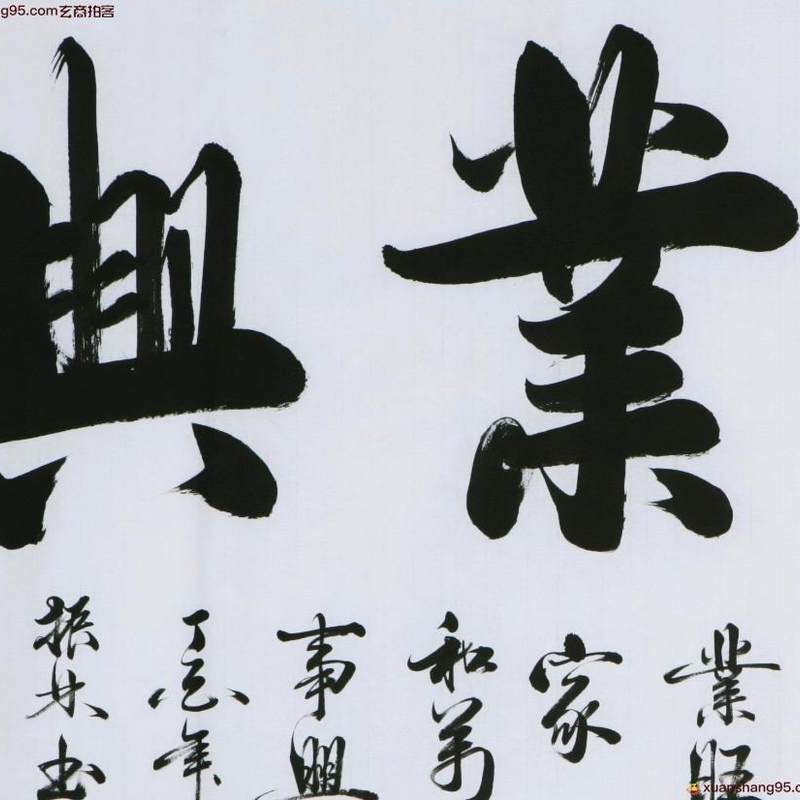 g95.com玄商拍客
業興
業旺
家
和萬
事興
丁
年
振
书
xuanshang95.c